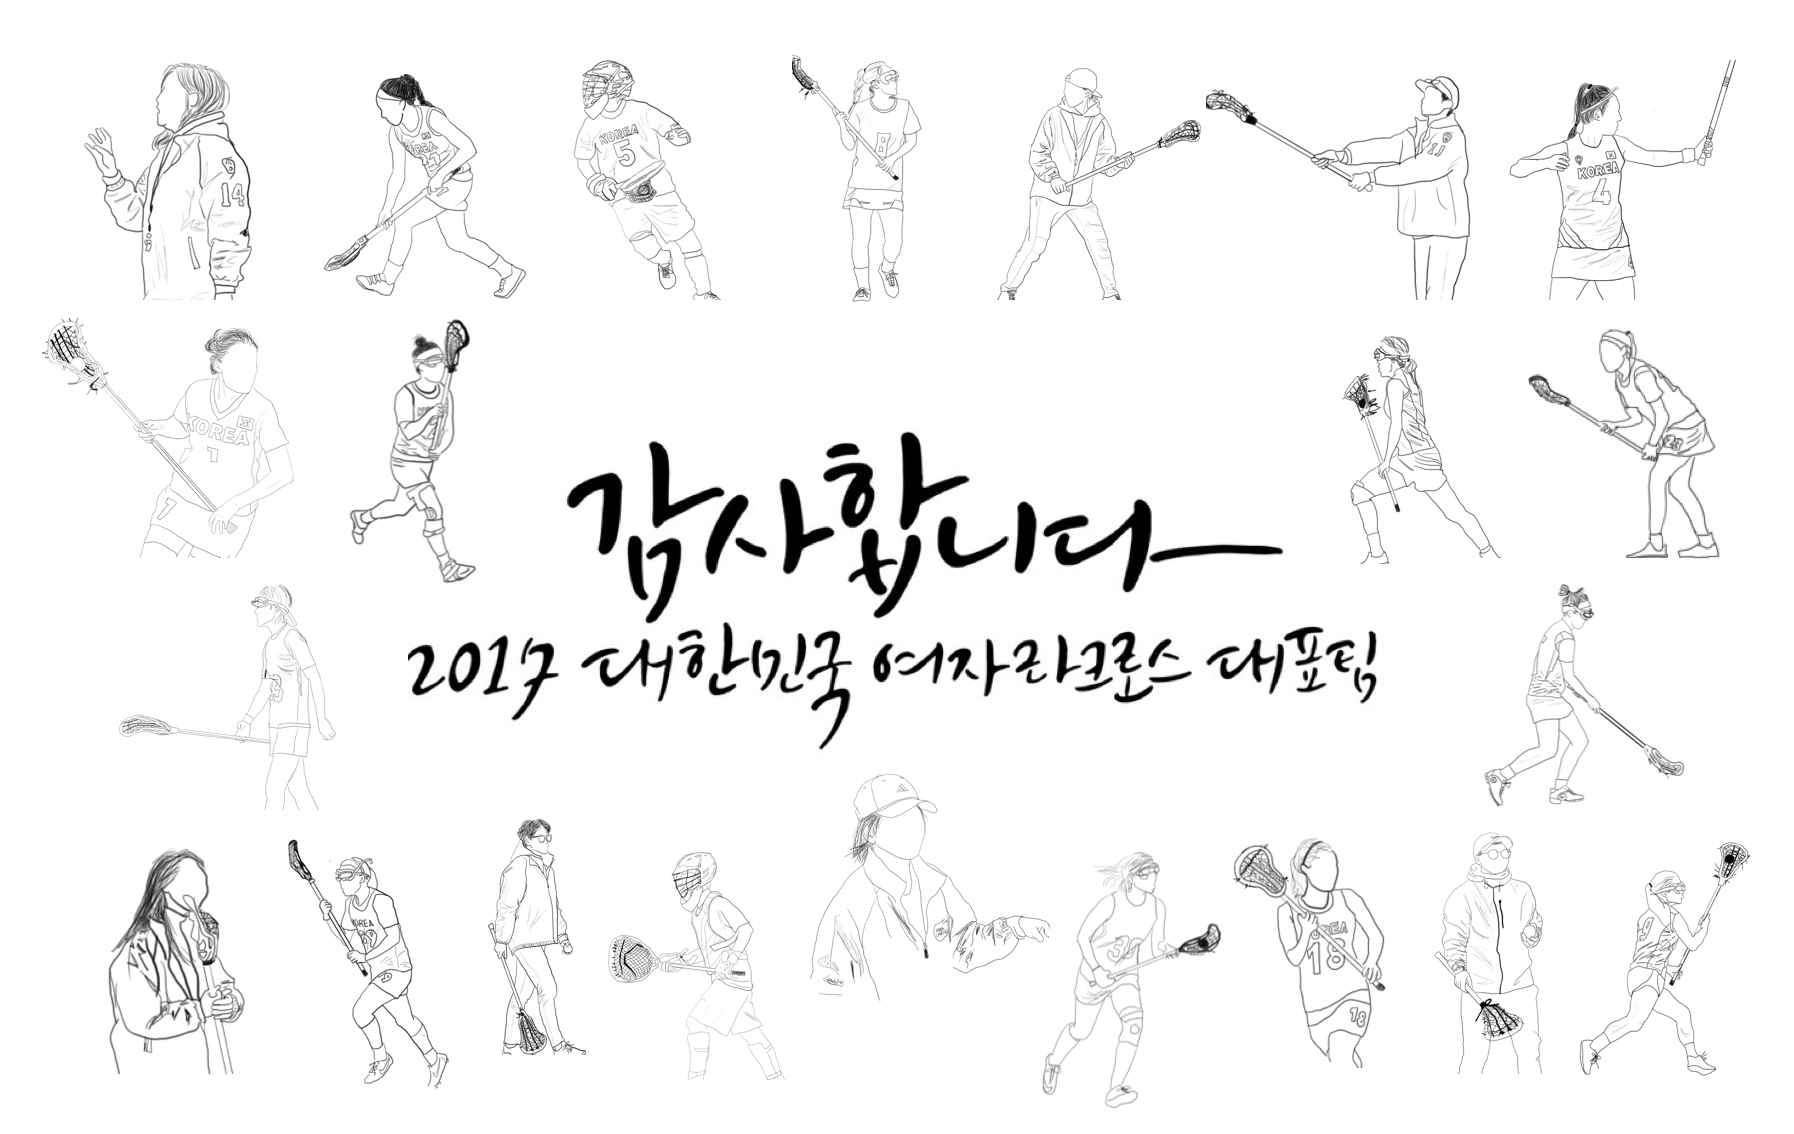 14
KOREA
5
8
11
KOREA
4
KOREA
7
7
23
감사합니다
2017 대한민국 여자라크로스 대표팀
3
KOREA
30
KOREA
18
18
9